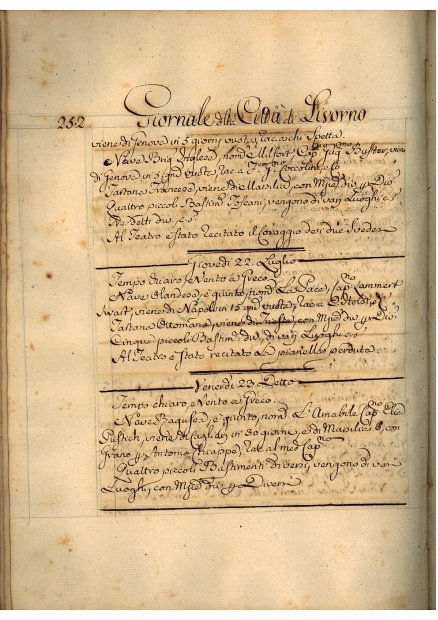 252
Giornale della Città di Livorno
viene di Genova in 5 giorni vuota, rac. a chi Spetta
Nave Brig Inglese, nom Milfort, Cap
di Genova in 5 gni vuota, rac. a
Tartana Francese, viene di Marsilia, con Mjdiv
Quattro piccoli Bastimi Toscani, vengono di varj Luoghi
Tre detti
Al Teatro è stato recitato il Coraggio de due Svedesi
Giovedi 22 Luglio
Tempo chiaro, e Vento a Greco
Nave Olandese, è giunto, nom La Pace, Cap.no Lammert
Swart, viene di Napoli in 15 gni vuota, rac. a
Tartana Ottomana, viene di con
Cinque piccoli Bastim di varj Luoghi
Al Teatro è stato recitato La pianella perduta
Venerdi 23 Detto
Tempo chiaro, e Vento a Greco
Nave Ragusea, è giunto, nom L'Amabile Cap.no
viene di Cagliari in 30 giorni, e di Marsilia 6, con
Grano Antonio rac. al med Cap.no
Quattro piccoli Bastimenti diversi, vengono di varj
Luoghi, con Diversi